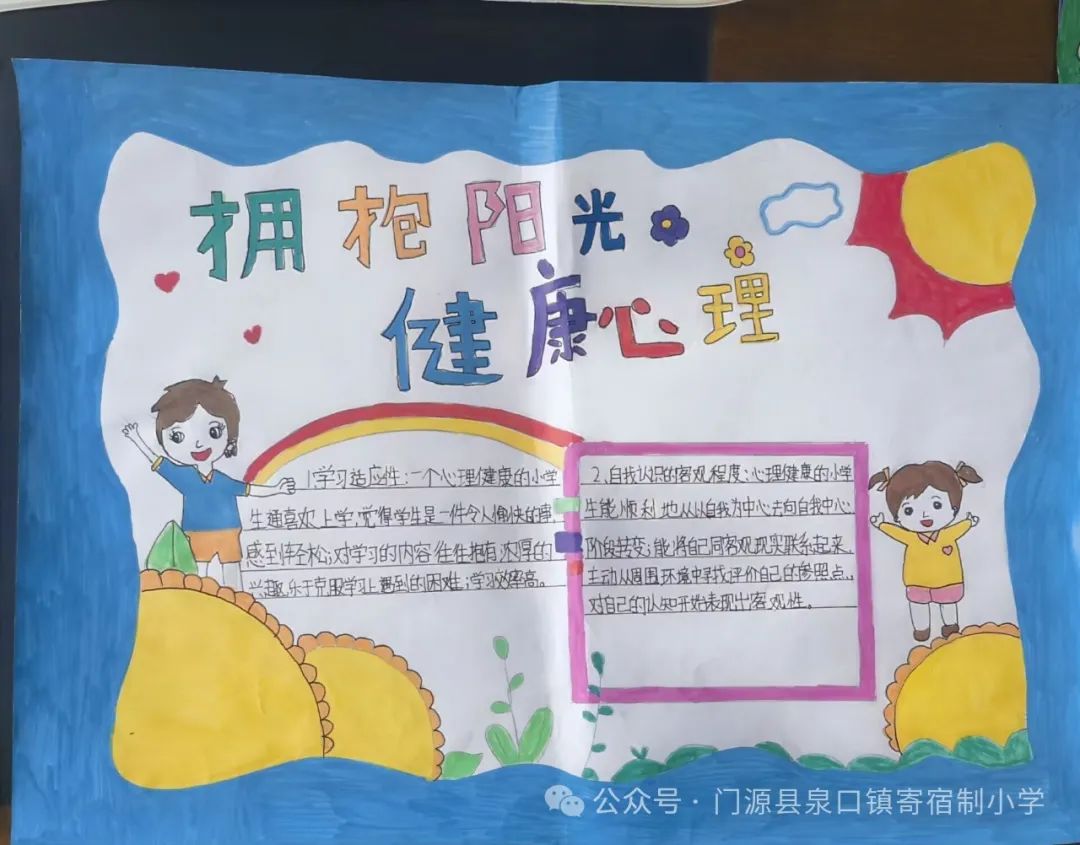 拥抱阳光
健康心理
1.学习适应性:一个心理健康的小学
生通喜欢上学,觉得学生是一件令人愉快的事,
感到轻松;对学习的内容往往拥有浓厚的
兴趣,乐于克服学习上遇到的困难;学习效率高。
2.自我认识的客观程度:心理健康的小学
生能顺利地从从自我为中心去向自我中心
阶段转变;能将自己同客观现实联系起来,
主动从周围环境中寻找评价自己的参照点,
对自己的认知开始表现出客观性。
公众号·门源县泉口镇寄宿制小学